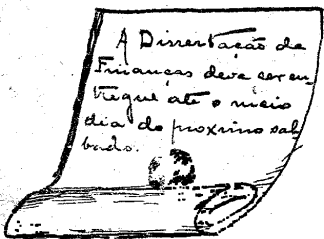 A Dissertação de
Finanças deve ser en-
tregue até o meio
dia do proximo sab-
bado.